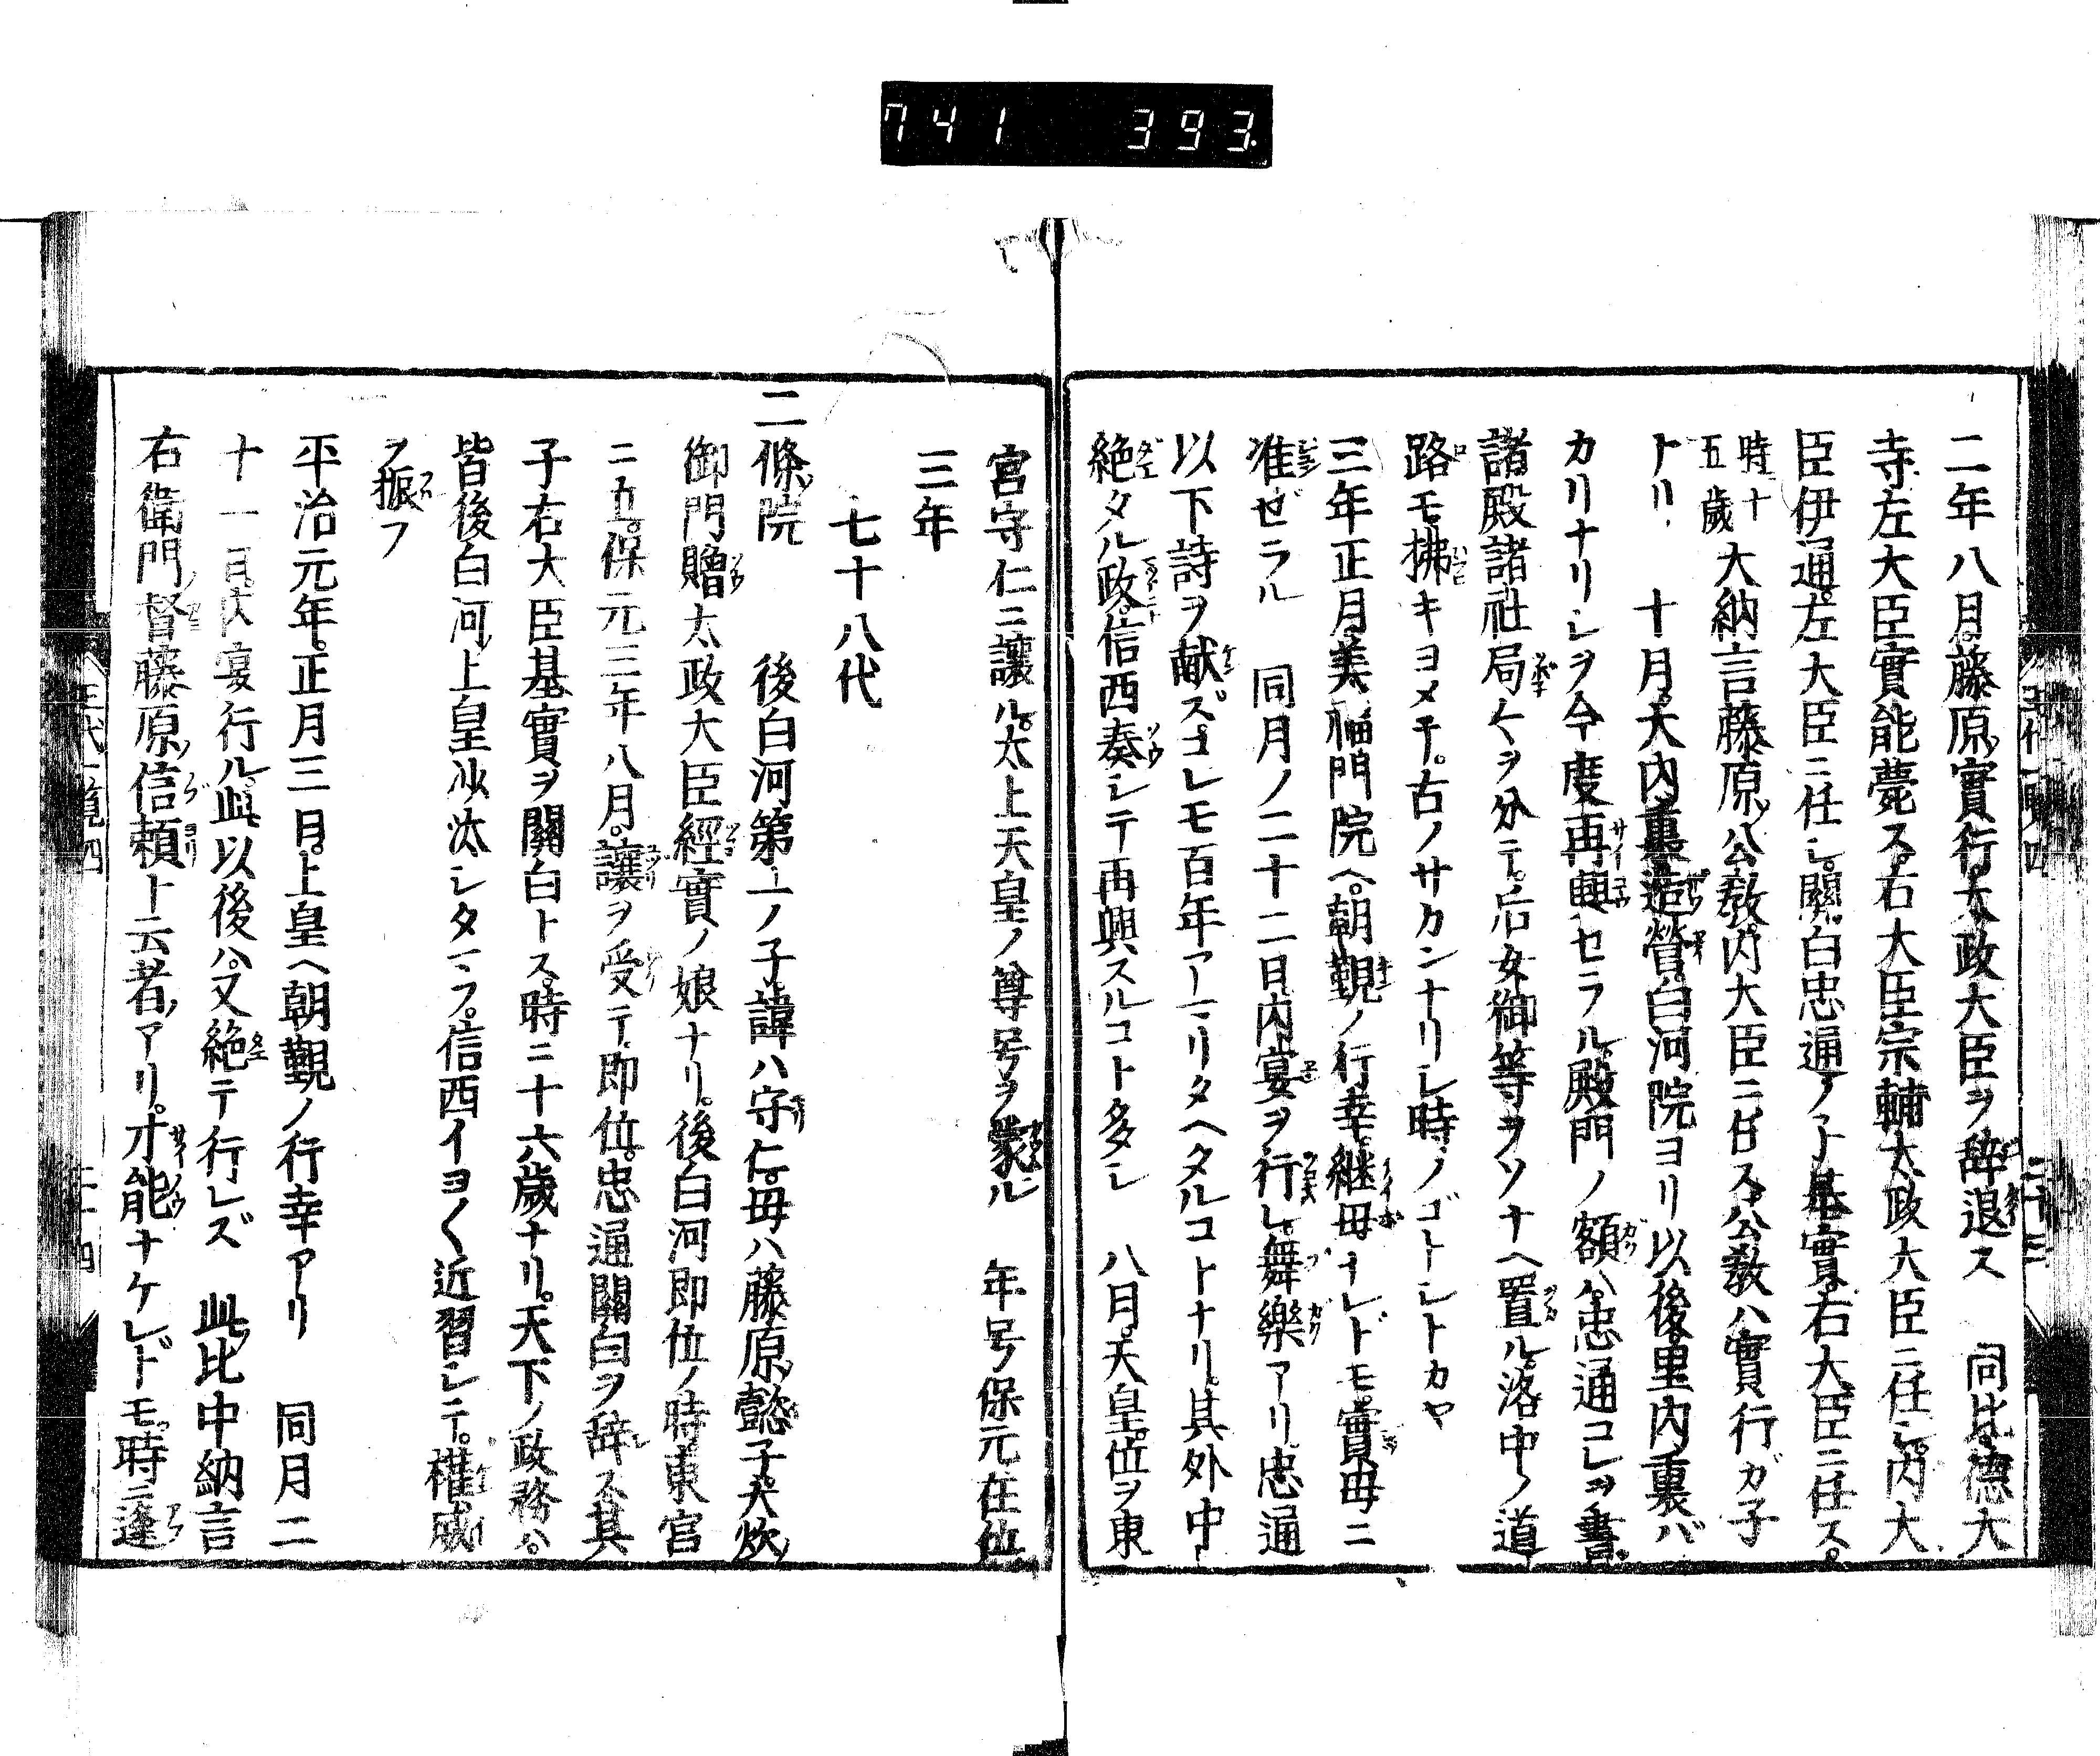 741 393.
二年八月。藤原ノ實行。太政大臣ヲ辞退ス 同比。德大
寺左大臣實能薨ス。右大臣宗輔太政大臣ニ任シ。内大
臣伊通。左大臣ニ任シ。關白忠通ノ子基實。右大臣ニ任ス。
時十五歲 大納言藤原ノ公教。内大臣ニ任ス。公教ハ實行ガ子
ナリ 十月。大内裏造營。白河院ヨリ以後。里内裏バ
カリナリシヲ今度再興セラル。殿門ノ額ハ。忠通コレヲ書。
諸殿諸社局〱ヲ分テ。后女御等ヲソナヘ置ル。洛中ノ道
路モ拂キヨメテ。古ノサカンナリシ時ノゴトシトカヤ
三年正月。美福門院ヘ。朝覲ノ行幸。継母ナレドモ。實母ニ
准ゼラル 同月ノ二十二日。内宴ヲ行レ。舞樂アリ。忠通
以下詩ヲ献ス。コレモ百年アマリタヘタルコトナリ。其外中
絶タル政。信西奏シテ再興スルコト多シ 八月。天皇。位ヲ東
宮守仁ニ讓ル。太上天皇ノ尊号ヲ蒙ル 年号ノ保元在位
三年
七十八代
二條院 後白河第一ノ子。諱ハ守仁。母ハ藤原ノ懿子。大炊
御門贈太政大臣經實ノ娘ナリ。後白河即位ノ時東宮
ニ立。保元三年八月。讓ヲ受テ即位。忠通關白ヲ辞ス。其
子右大臣基實ヲ關白トス。時ニ十六歲ナリ。天下ノ政務ハ。
皆後白河ノ上皇沙汰シタマフ。信西イヨ〱近習シテ。權威
ヲ振フ
平治元年。正月三日。上皇ヘ朝覲ノ行幸アリ 同月二
十一日。内宴行ル。此以後ハ。又絶テ行レズ 此比中納言
右衛門ノ督藤原ノ信頼ト云者アリ。才能ナケレドモ。時ニ逢